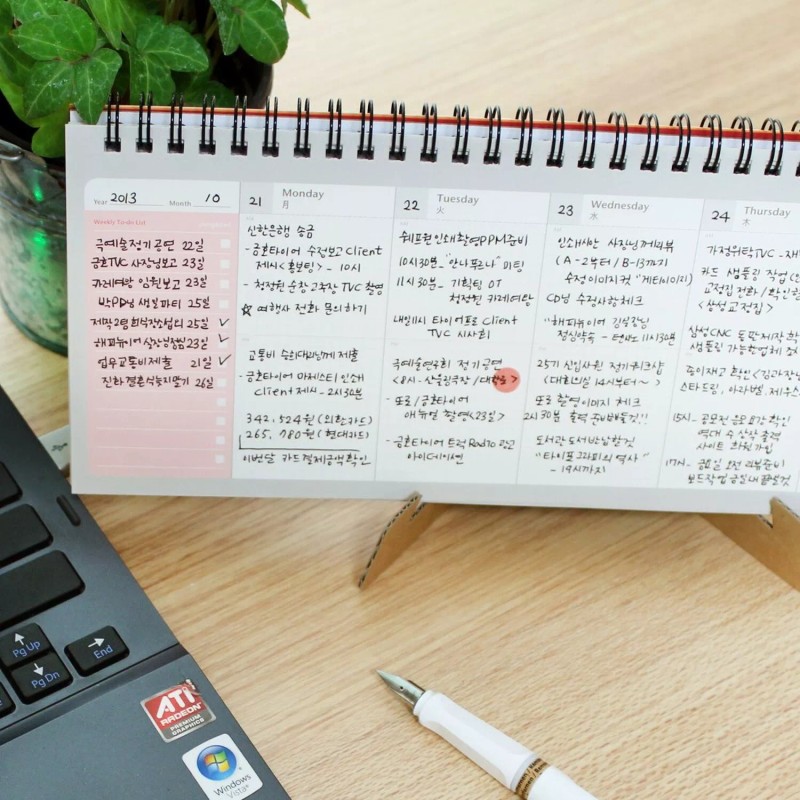 Year 2013 Month 10
Weekly To-do List
극예술정기공연 22일
금호TVC 사장님보고 23일
카레여왕 임원보고 23일
박PD님 생일파티 25일
23일
업무교통비제출 21일
26일
21 Monday
月
신한은행 송금
- 금호타이어 수정보고 Client
제시 <홍보팀> - 10시
- 청정원 순창고추장 TVC 촬영
☆ 여행사 전화 문의하기
교통비 제출
- 금호타이어 마제스티 인쇄
Client 제시 - 2시30분
342,524원 (외환카드)
265,780원 (현대카드)
이번달 카드결제금액확인
22 Tuesday
火
쉐프원인쇄촬영PPM준비
10시30분_ "안나푸르나" 미팅
11시30분_ 기획팀 OT
청정원 카레여왕
내일시 타이어프로 Client
TVC 시사회
극예술연구회 정기공연
<8시- 산울림극장/대학로>
- 또로/금호타이어
애뉴얼 촬영<23일>
- 금호타이어 트럭 Radio 광고
아이데이션
23 Wednesday
水
인쇄시안 사장님께리뷰
(A-2부터/B-13까지
수정이미지컷 "게티이미지)
CD님 수정사항체크
"해피뉴이어 김실장님
점심약속 - 11시30분
25기 신입사원 정기워크샵
(대회의실 14시부터~)
또로 촬영이미지 체크
2시30분 출력 준비해둘것!!
도서관 도서반납할것
"타이포그라피의 역사"
- 19시까지
24 Thursday
木
가정위탁TVC -
카드 샘플링 작업
교정집 전화/확인
<삼성교정집>
삼성CNC 동판제작
샘플링 가능한업체
종이재고 확인
스타드림, 아라벨,
15시_ 공모전 응모요강 확인
역대 수상작 출력
사이트 회원가입
17시_ 금요일 오전 리뷰준비
보드작업 금일내 끝낼것
Pg Up
Pg Dn
End
ATI
RADEON
PREMIUM
GRAPHICS
Windows
Vista